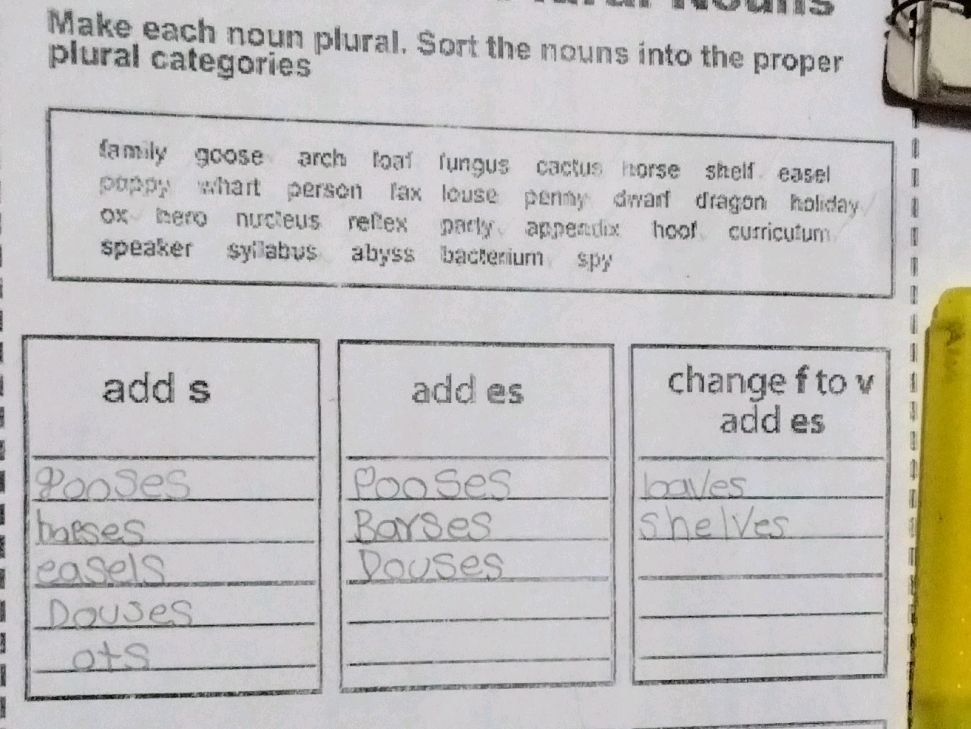 Nouns
Make each noun plural. Sort the nouns into the proper
plural categories
family goose arch loaf fungus cactus horse shelf easel
poppy whart person fax louse penny dwarf dragon holiday
ox hero nucleus reflex party appendix hoof curriculum
speaker syllabus abyss bacterium spy
add s
gooses
horses
easels
Douses
ots
add es
Pooses
Barses
Douses
change f to v
add es
loaves
shelves